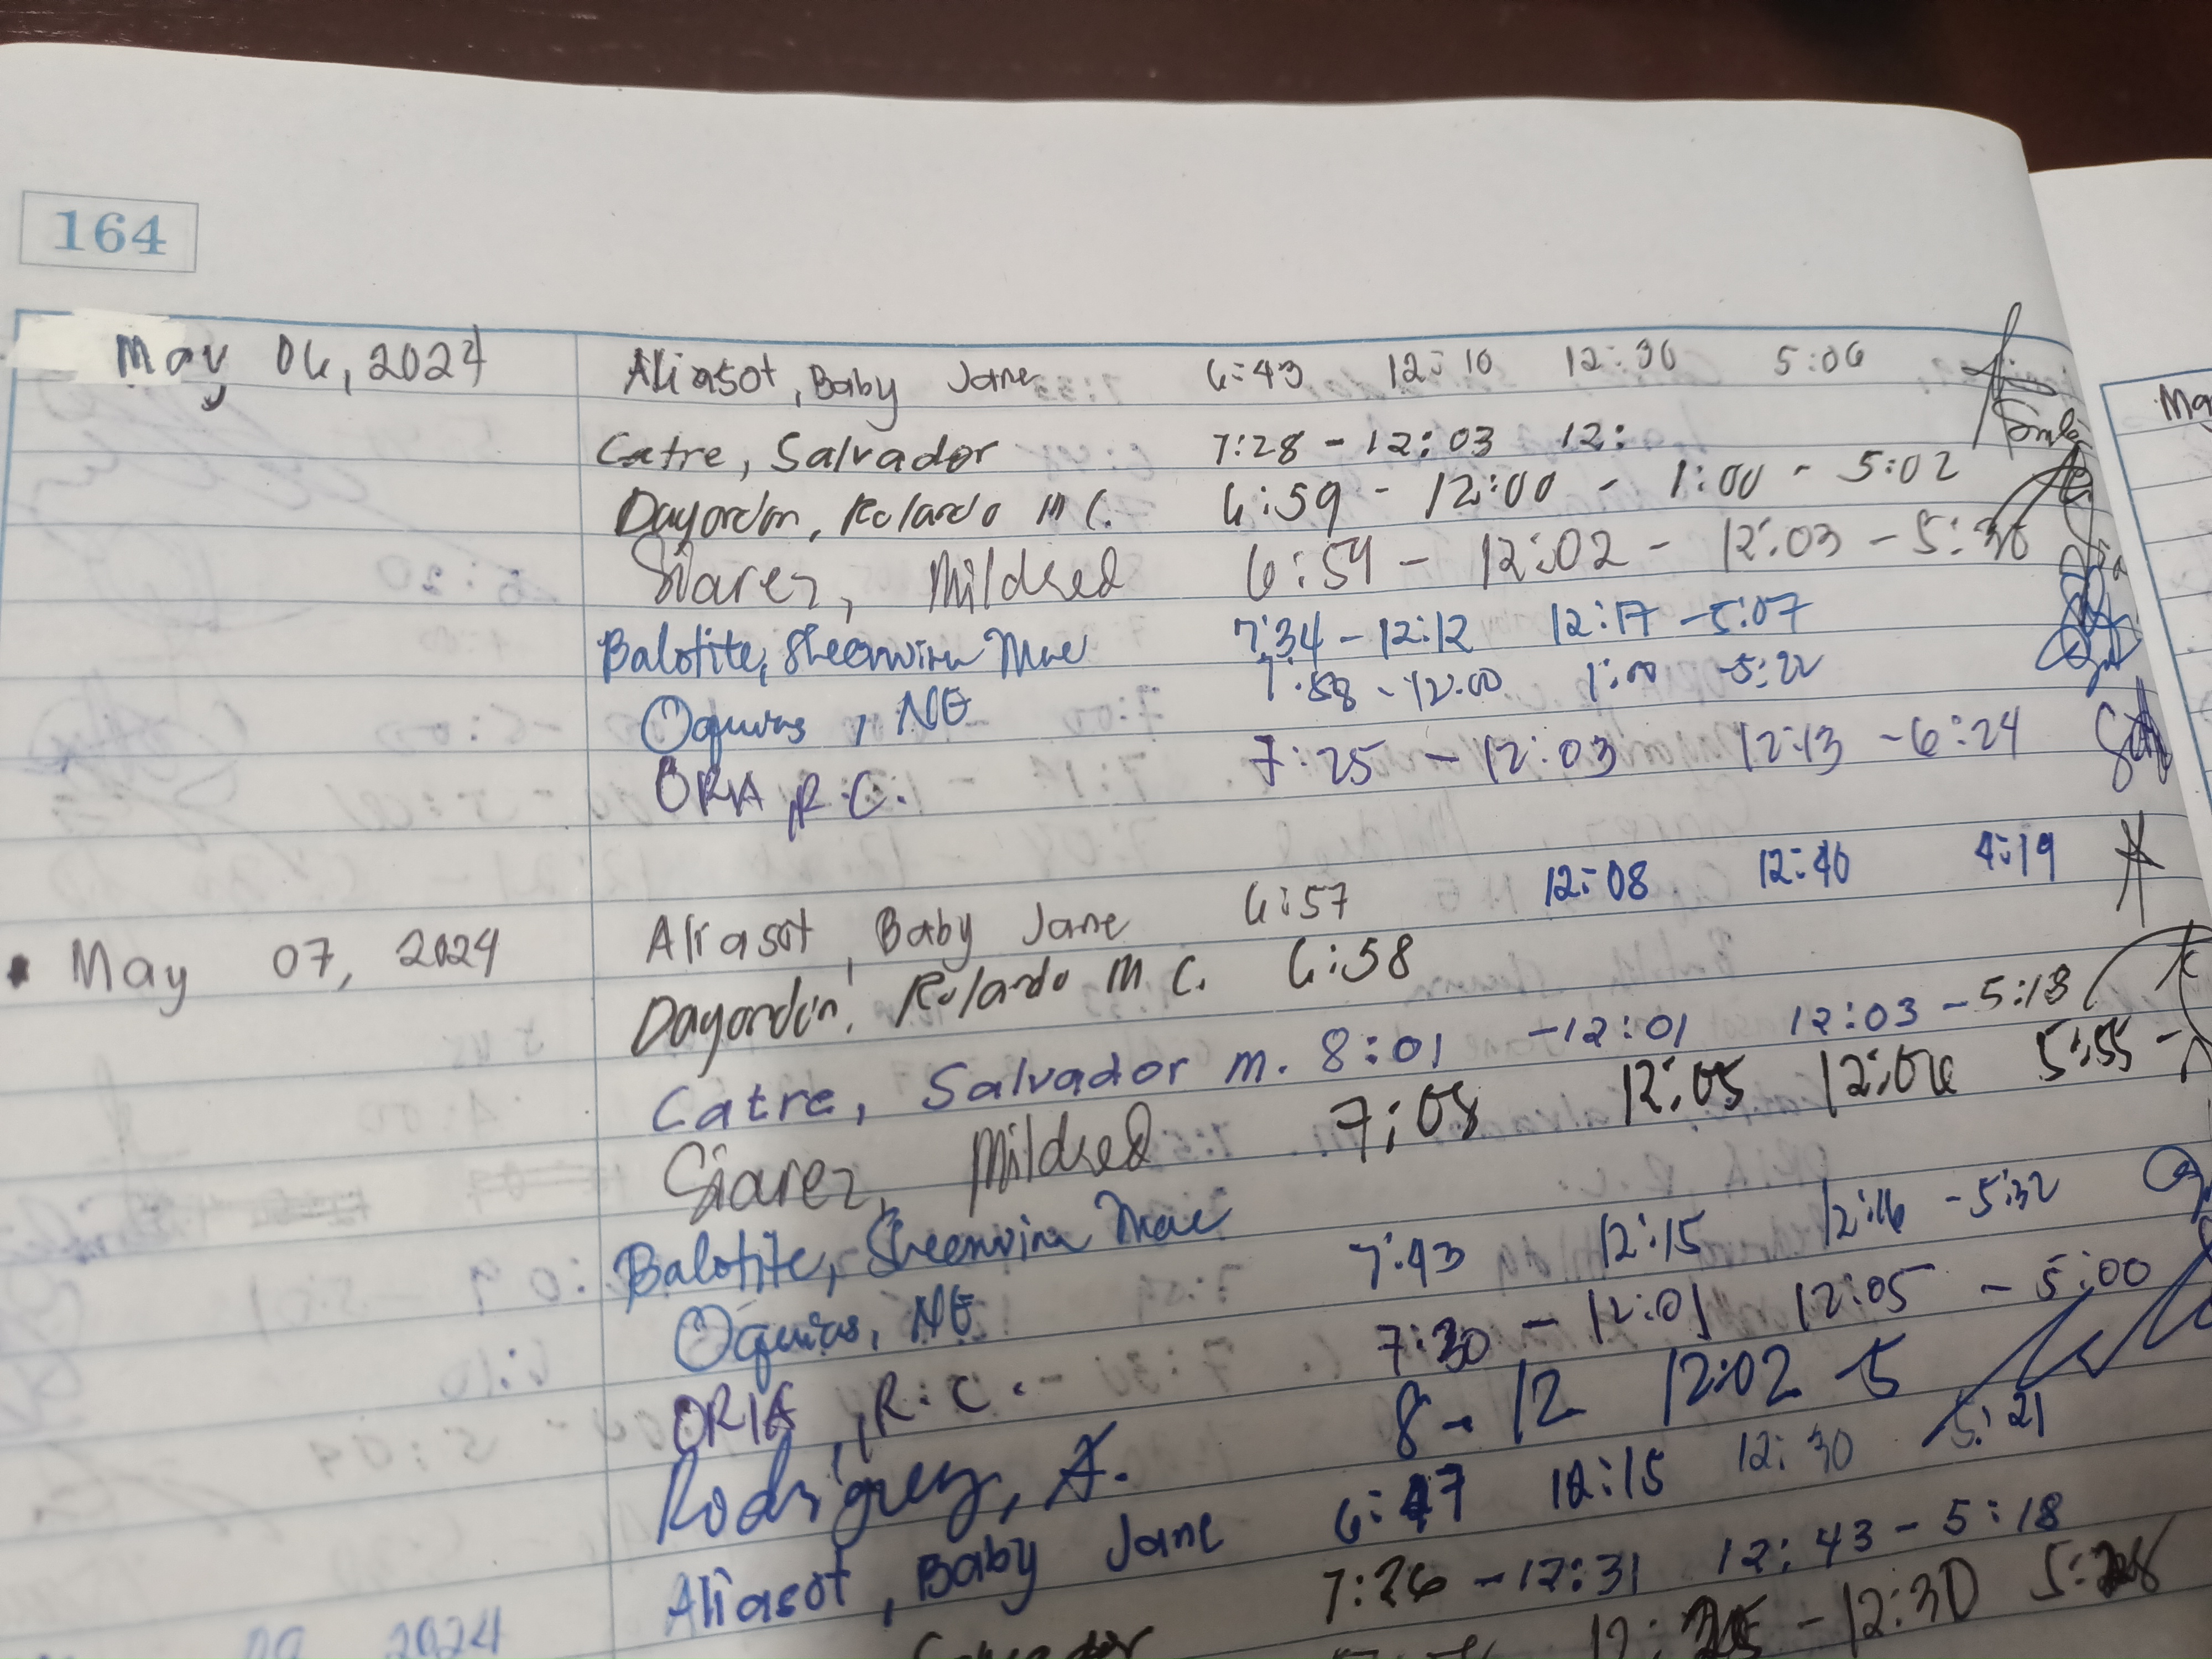 164
May 06, 2024 Aliasot, Baby Jane 6:43 12:10 12:30 5:06
Catre, Salvador 7:28 - 12:03 12:
Dayordon, Rolando M C. 6:59 - 12:00 - 1:00 - 5:02
Siarez, Mildred 6:54 - 12:02 - 12:03 - 5:
Balotite, Sheenvira Mae 7:34 - 12:12 12:17 - 5:07
Oquias, NE 7:58 - 12:00 1:00 - 5:22
ORIA, R.C. 7:25 - 12:03 12:13 - 6:24
May 07, 2024 Aliasot, Baby Jane 6:57 12:08 12:40 4:19
Dayordon, Rolando M C. 6:58
Catre, Salvador M. 8:01 - 12:01 12:03 - 5:13
Siarez, Mildred 7:08 12:05 12:06 5:55
Balotite, Sheenvira Mae 7:43 12:15 12:16 - 5:32
Oquias, NE 7:30 - 12:01 12:05 - 5:00
ORIA, R.C. 8 - 12 12:02 - 5
Rodriguez, A. 6:47 12:15 12:30 5:21
Aliasot, Baby Jane 7:26 - 12:31 12:43 - 5:18
2024 12: - 12:30 5:28